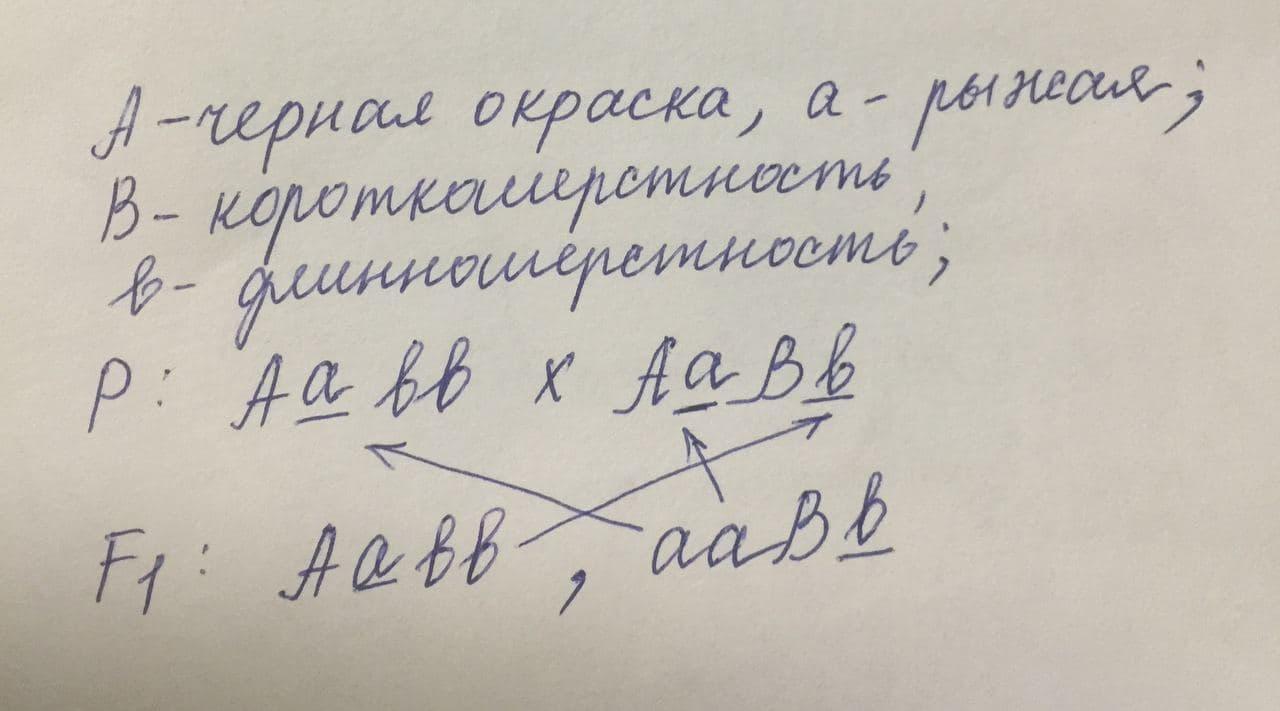 А – черная окраска, а - рыжая;
В - короткошерстность,
в - длинношерстность;
Р: Аа вв х АаВв
F1: Аавв, ааВв